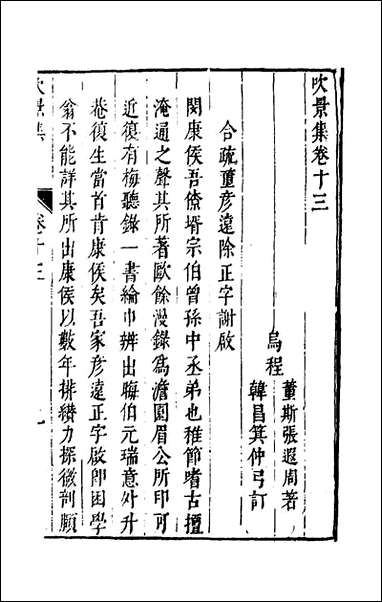 吹景集卷十三
烏程
董斯張遐周著
韓昌箕仲弓訂
合疏董彥遠除正字謝啟
閔康侯吾儕壻宗伯曾孫中丞弟也稚節嗜古擅
淹通之聲其所著歐餘漫錄為澹園眉公所印可
近復有梅聽錄一書綸巾辨出晦伯元瑞意外升
菴復生當首肯康侯矣吾家彥遠正字啟即困學
翁不能詳其所出康侯以數年排纘力探微剖願
吹景集
卷十三